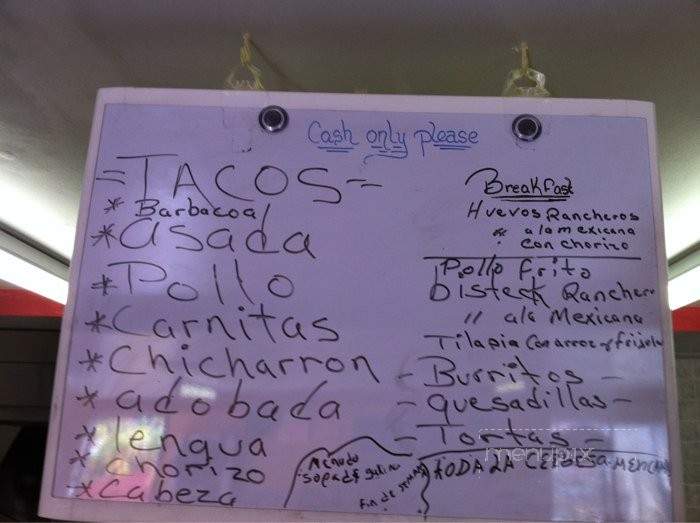 Cash only please
=TACOS=
* Barbacoa
* asada
* Pollo
* Carnitas
* Chicharron
* adobada
* lengua
* chorizo
* Cabeza
Breakfast
Huevos Rancheros
" a la mexicana
: con chorizo
Pollo frito
bisteck Ranchero
" a la Mexicana
Tilapia con arroz y frijole
- Burritos -
- quesadillas -
- Tortas -
Menudo
sopa de
fin de semana
TODA LA MEXICANA
menupix